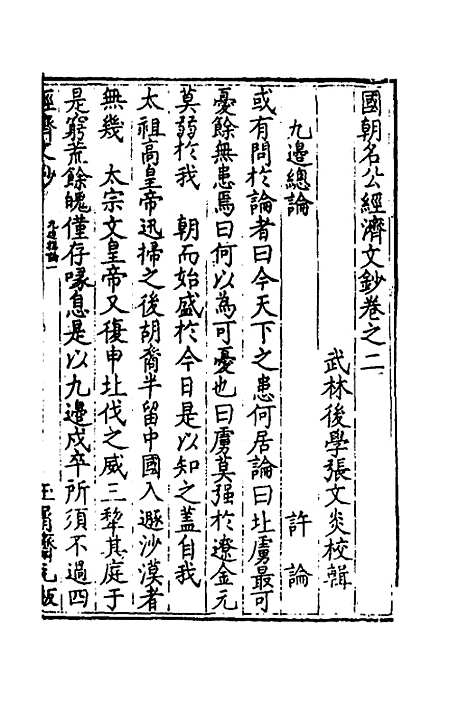 國朝名公經濟文鈔卷之二
武林後學張文炎校輯
九邊總論　許論
或有問於論者曰今天下之患何居論曰北虜最可
憂餘無患焉曰何以為可憂也曰虜莫强於遼金元
莫弱於我　朝而始盛於今日是以知之蓋自我
太祖高皇帝迅掃之後胡裔半留中國入遯沙漠者
無幾　太宗文皇帝又復申北伐之威三犂其庭于
是窮荒餘魄僅存喙息是以九邊戍卒所須不過四
經濟文鈔　九邊總論一　玉屑齋